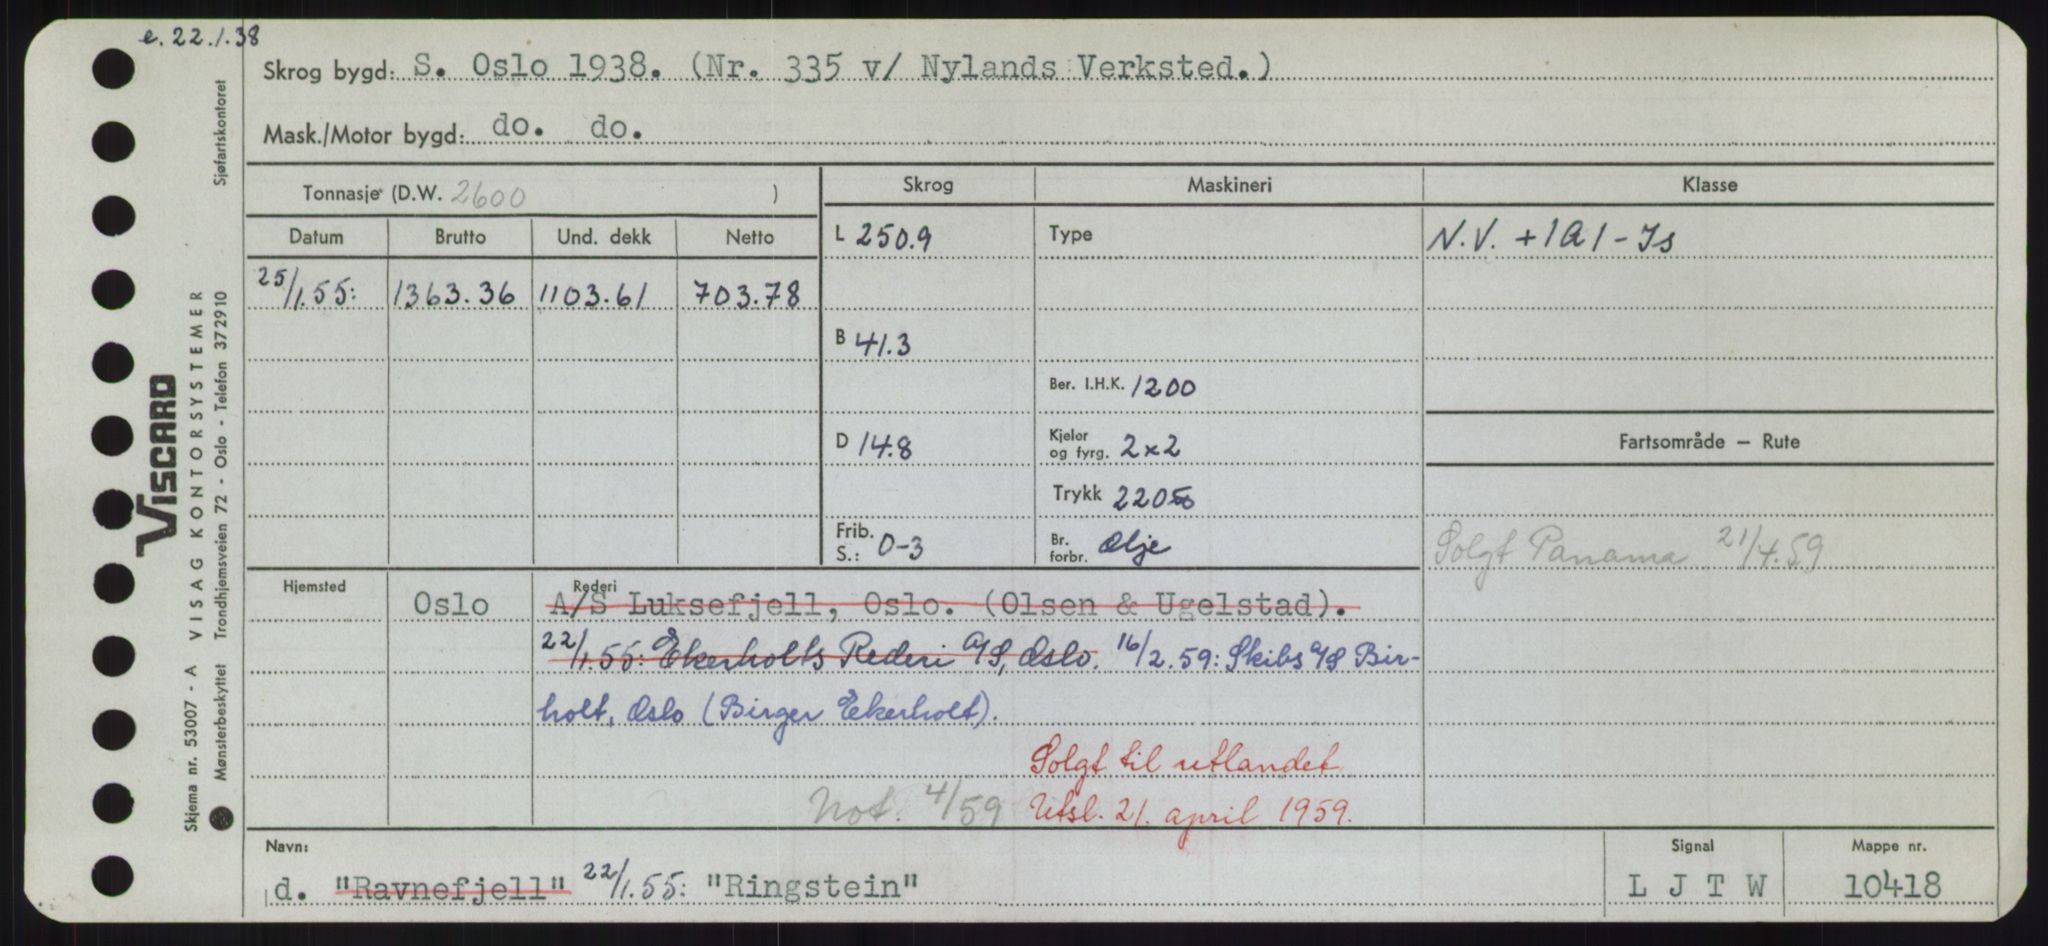 e. 22.1.38
Skrog bygd: S. Oslo 1938. (Nr. 335 v/ Nylands Verksted.)
Mask./Motor bygd: do. do.
Tonnasje (D.W. 2600 )
Skrog Maskineri Klasse
Datum Brutto Und. dekk Netto
L 250.9 Type N.V. +1A1-Is
25/1.55: 1363.36 1103.61 703.78
B 41.3
Ber. I.H.K. 1200
D 14.8 Kjeler og fyrg. 2x2 Fartsområde – Rute
Trykk 220
Frib. S.: 0-3 Br. forbr. Olje Solgt Panama 21/4.59
Hjemsted Oslo Rederi A/S Luksefjell, Oslo. (Olsen & Ugelstad).
22/1.55: Ekerholts Rederi A/S, Oslo. 16/2.59: Skibs A/S Bir-
holt, Oslo (Birger Ekerholt).
Solgt til utlandet
Not. 4/59 Utsl. 21. april 1959.
Navn: Signal Mappe nr.
d. "Ravnefjell" 22/1.55: "Ringstein" L J T W 10418
Sjøfartskontoret
VISCARD
VISAG KONTORSYSTEMER
Trondhjemsveien 72 - Oslo - Telefon 372910
Skjema nr. 53007 - A
Mønsterbeskyttet